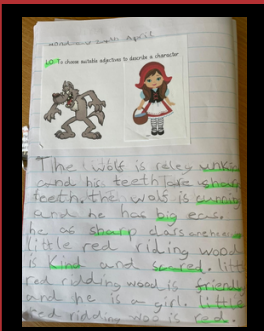 April
L.O. To choose suitable adjectives to describe a character
The wolf is reley unkind
and his teeth are sharp
teeth. the wolf is cunning
and he has big ears.
he as sharp claws
little red riding wood
is Kind and scared. little
red ridding wood is friendly
and he is a girl. little
red ridding woo is red.